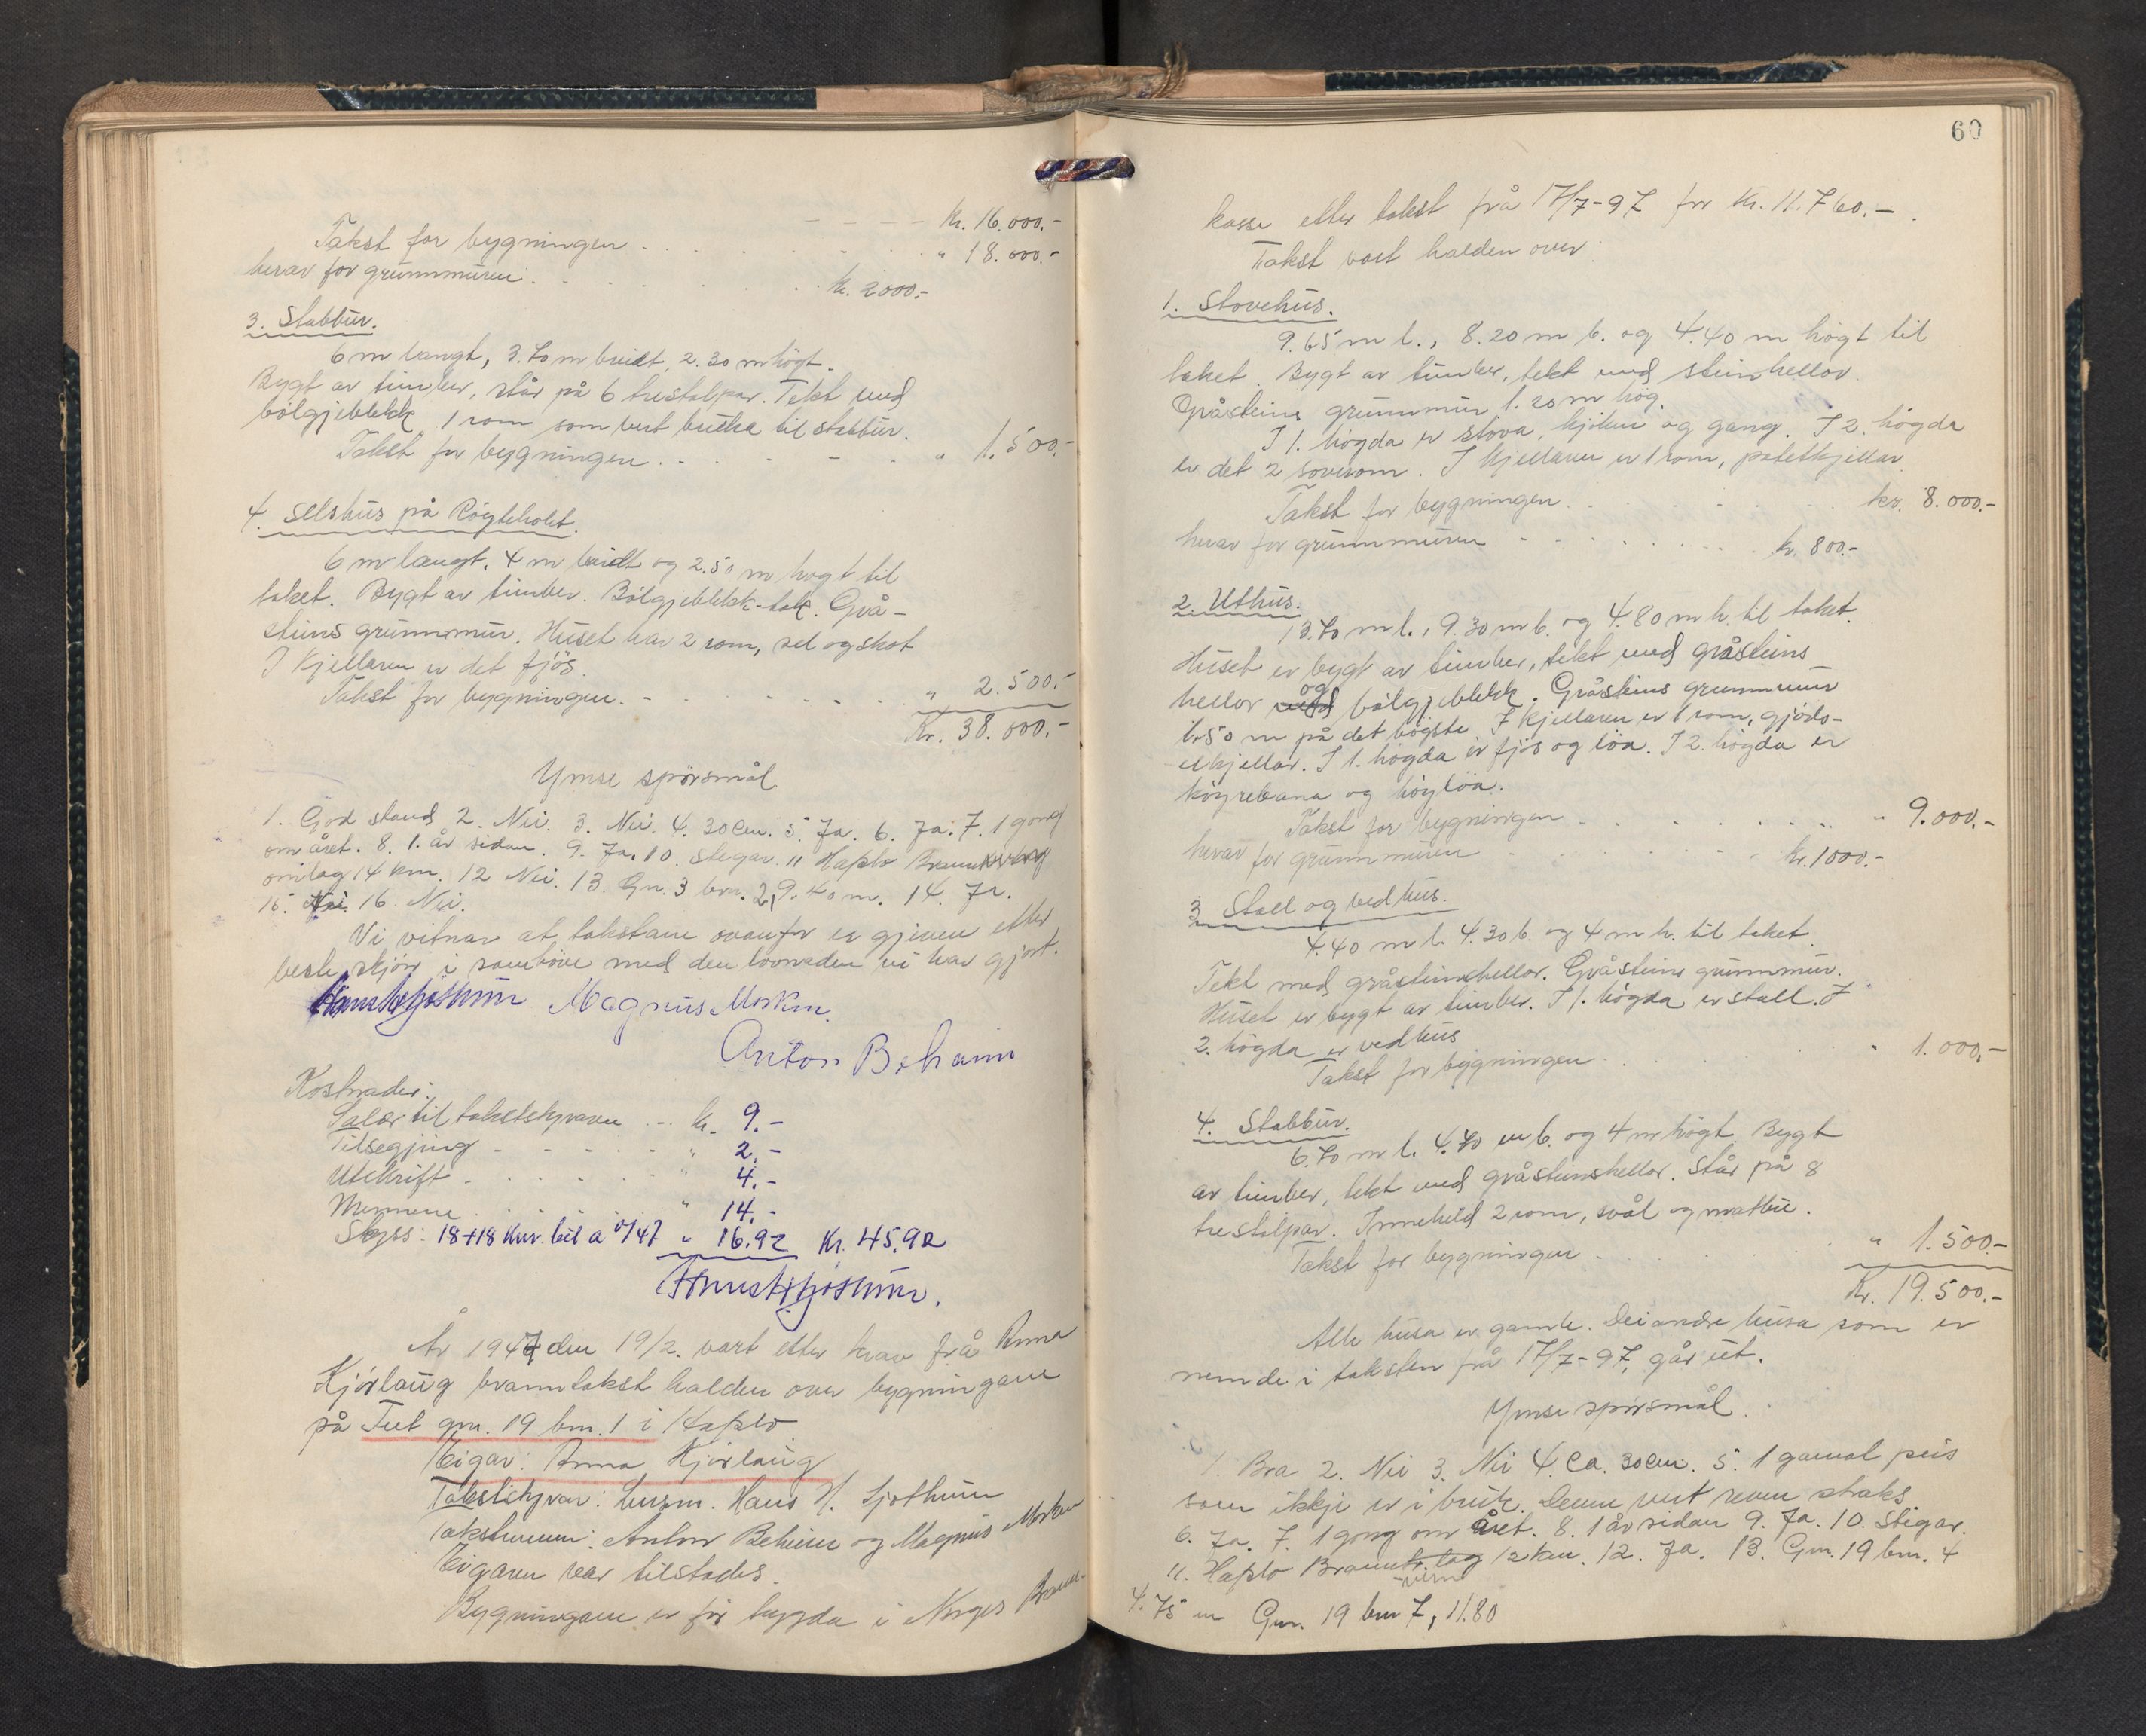 Kr. 16.000.-
Takst for bygningen . . . . . . " 18.000.-
herav for grunnmuren . . . . . kr. 2000.-
3. Stabbur.
6 m langt, 3.70 m breidt, 2.30 m högt.
Bygt av timber, står på 6 trestolpar. Tekt med
bölgjeblekk. 1 rom som vert bruka til stabbur.
Takst for bygningen . . . . . " 1.500.-
4. Selshus på
6 m langt. 4 m breidt og 2.50 m högt til
taket. Bygt av timber. Bölgjeblekk-tak. Grå-
steins grunnmur. Huset har 2 rom, sel og skot
I kjellaren er det fjös.
Takst for bygningen . . . . . " 2.500.-
Kr. 38.000.-
Ymse spörsmål
1. God stand 2. Nei. 3. Nei. 4. 30 Cm. 5. Ja. 6. Ja. 7. 1 gong
om året. 8. 1. år sidan. 9. Ja. 10. Stegar. 11 Hafslo Brannvern
omlag 14 km. 12 Nei. 13. Gn. 3 bn. 2, 9.40 m. 14. Ja.
15. Nei. 16. Nei.
Vi vitnar at takstane ovanfor er gjevne etter
beste skjön i samhöve med den lovnaden vi har gjort.
Hans H. Ljøthun Magnus Morken.
Anton Beheim
Kostnader:
Salær til takstskrivaren ... kr. 9.-
Tilsegjing - - - - - " 2.-
Utskrift . . . . . . " 4.-
Mennene . . . . . " 14.-
Skyss: 18+18 km. bil a 0/47 " 16.92 Kr. 45.92
Hans H. Ljøthun.
År 1947 den 19/2. vart etter krav frå Anna
Hjörlaug branntakst halden over bygningane
på Tut gnr. 19 bnr. 1 i Hafslo
Eigar: Anna Hjörlaug
Takstskrivar: lensm. Hans H. Ljøthun
Takstmenn: Anton Beheim og Magnus Morken
Eigaren var tilstades.
Bygningane er för trygda i Norges Brann-
60
kasse etter takst frå 17/7-97 for Kr. 11.760.-
Takst vart halden over:
1. Stovehus.
9.65 m l., 8.20 m b. og 4.40 m högt til
taket. Bygt av timber, tekt med steinhellor.
Gråsteins grunnmur 1.20 m hög.
I 1. högda er stova, kjöken og gang. I 2. högda
er det 2 soverom. I kjellaren er 1 rom, potetkjellar
Takst for bygningen . . . . . kr. 8.000.-
herav for grunnmuren - - . . . . . kr. 800.-
2. Uthus.
13.70 m l., 9.30 m b. og 4.80 m h. til taket.
Huset er bygt av timber, tekt med gråsteins
hellor og bölgjeblekk. Gråsteins grunnmur
1.50 m på det högste. I kjellaren er 1 rom, gjöds-
elkjellar. I 1. högda er fjös og löa. I 2. högda er
köyrebana og höylöa.
Takst for bygningen . . . . . " 9.000.-
herav for grunnmuren . . . . . kr. 1000.-
3 Stall og vedhus.
4.40 m l. 4.30 b. og 4 m h. til taket.
Tekt med gråsteinshellor. Gråsteins grunnmur.
Huset er bygt av timber. I 1. högda er stall. I
2. högda er vedhus
Takst for bygningen . . . . " 1.000.-
4. Stabbur.
6.70 m l. 4.70 m b. og 4 m högt. Bygt
av timber, tekt med gråsteinshellor. Står på 8
trestolpar. Inneheld 2 rom, svål og matbu.
Takst for bygningen . . . . " 1.500.-
Kr. 19.500.-
Alle husa er gamle. Dei andre husa som er
nemde i taksten frå 17/7-97, går ut.
Ymse spörsmål.
1. Bra 2. Nei 3. Nei 4. Ca. 30 Cm. 5. 1 gamal peis
som ikkje er i bruk. Denne vert reven straks.
6. Ja. 7. 1 gong om året. 8. 1 år sidan 9. Ja. 10. Stigar.
11. Hafslo Brannlag 12 km. 12. Ja. 13. Gnr. 19 bnr. 4
-vern
4.75 m Gnr. 19 bnr 7, 11.80